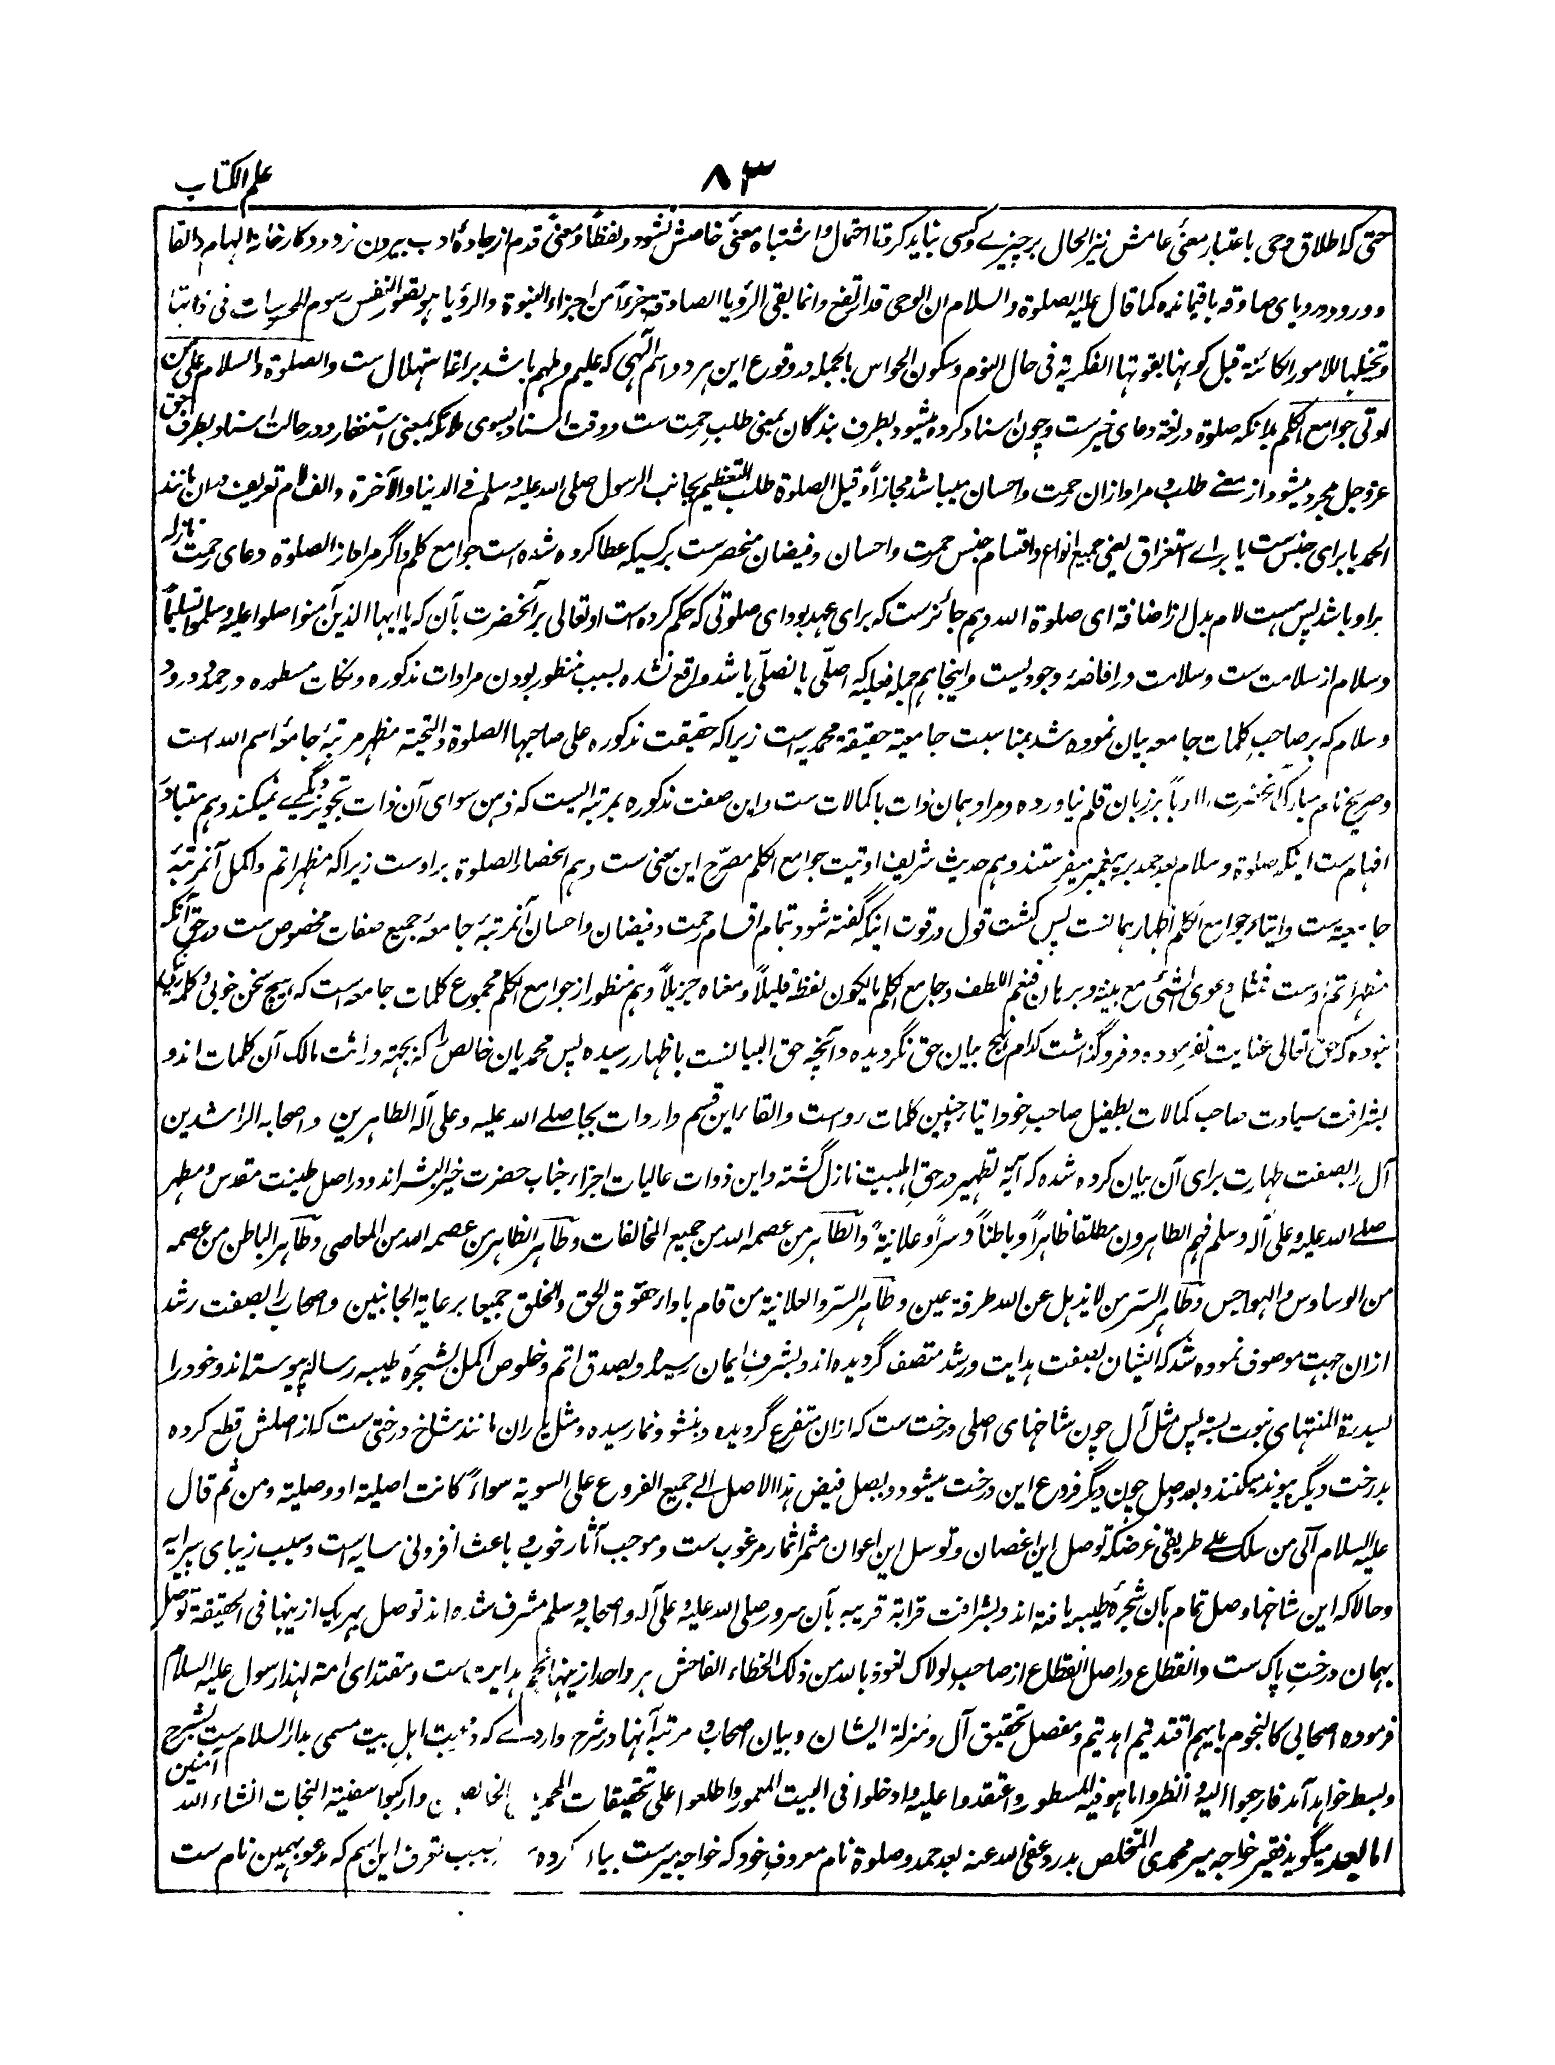 علم الکتاب
۸۳
حتی که اطلاق وحی باعتبار معنیٔ عامش نیز الحال بر چیزے و کسی نباید کرد تا احتمال و اشتباه معنیٔ خاصش نشود و لفظاً و معنیً قدم از جادۂ ادب بیرون نرود و کارخانۂ الهام و القا
و ورود در رویای صادقه باقیمانده کما قال علیه الصلوة والسلام ان الوحی قد ارتفع وانما بقی الرؤیا الصادقة جزءاً من اجزاء النبوة والرؤیا هو بقو النفس رسوم المحسوسات فی ذاتها
وتخیلها للامور الکائنة قبل کونها بقوتها الفکریة فی حال النوم وسکون الحواس بالجمله در وقوع این هر دو اسم الٓهی که علیم و ملهم باشد براعة استهلال ست والصلوة والسلام علی من
اوتی جوامع الکلم بدانکه صلوة در لغة دعای خیرست و چون اسناد کرده میشود بطرف بندگان بمعنی طلب رحمت ست و وقت اسناد بسوی ملائکه بمعنی استغفار و در حالت اسناد بطرف حق
عز و جل مجرد میشود از معنے طلب و مراد ازان رحمت و احسان میباشد مجازاً وقیل الصلوة طلب التعظیم بجانب الرسول صلی الله علیه وسلم فی الدنیا والآخرة والف لام تعریف دران مانند
الحمد یا برای جنس ست یا برائے استغراق یعنی جمیع انواع و اقسام جنس رحمت و احسان و فیضان منحصرست بر کسیکه عطا کرده شده است جوامع کلم و اگر مراد از الصلوة دعای رحمت نازله
براو باشد پس هست لام بدل از اضافه ای صلوة الله و هم جائزست که برای عهد بود ای صلوتی که حکم کرده است او تعالی بر آنحضرت بآن که یا ایها الذین آمنوا صلوا علیه وسلموا تسلیماً
و سلام از سلامت ست و سلامت در افاضۂ وجودیست و اینجا هم جمله فعلیه که اصلّی یا نصلّی باشد واقع نشده بسبب منظور بودن مرادات مذکوره و نکات مسطوره و رحمة و درود
و سلام که بر صاحب کلمات جامعه بیان نموده شد بمناسبت جامعیة حقیقة محمدیه است زیرا که حقیقت مذکوره علی صاحبها الصلوة والتحیة مظهر مرتبۂ جامعۂ اسم الله است
و صریح نام مبارک آنحضرت ادباً بر زبان قلم نیاورده و مراد همان ذات با کمالات ست و این صفت مذکوره بمرتبه ایست که ذهن سوای آن ذات تجویز دیگرے نمیکند و هم متبادر
افهام ست اینکه صلوة و سلام بعد حمد بر پیغمبر میفرستند و هم حدیث شریف اوتیت جوامع الکلم مصرّح این معنی ست و هم انحصار الصلوة بر اوست زیرا که مظهر اتم و اکمل آنمرتبۂ
جامعیة ست و ایتاء جوامع الکلم اظهار همانست پس گشت قول در قوت اینکه گفته شود تمام اقسام رحمت و فیضان و احسان آنمرتبۂ جامعۂ جمیع صفات مخصوص ست در حق آنکه
مظهر اتم اوست فمثل دعوی الشئ مع بینة و برهان فنعم اللطف و جامع الکلم ما یکون لفظه قلیلاً و معناه جزیلاً و هم منظور از جوامع الکلم مجموع کلمات جامعه است که هیچ سخن خوبی و کلمۂ نیکی
نبوده که حق تعالی عنایت نفرموده و فروگذاشت کدام هیچ بیان حق نگردیده و آنچه حق البیانست باظهار رسیده پس محمدیان خالص را که بجهة وراثت مالک آن کلمات اند و
بشرافت سیادت صاحب کمالات بطفیل صاحب خود ایتاء چنین کلمات رواست و القاء این قسم واردات بجا صلے الله علیه وعلی آله الطاهرین واصحابه الراشدین
آل را بصفت طهارت برای آن بیان کرده شده که آیۂ تطهیر در حق اهلبیت نازل گشته و این ذوات عالیات اجزاء جناب حضرت خیر البشر اند و در اصل طینت مقدس و مطهر
صلے الله علیه وعلی آله وسلم فهم الطاهرون مطلقا ظاهراً وباطناً وسراً وعلانیةً والطاهر من عصمه الله من جمیع المخالفات وطاهر الظاهر من عصمه الله من المعاصی وطاهر الباطن من عصمه
من الوساوس والهواجس وطاهر السر من لا یذهل عن الله طرفة عین وطاهر السرّ والعلانیة من قام باداء حقوق الحق والخلق جمیعا برعایة الجانبین و اصحاب را بصفت رشد
ازان جهت موصوف نموده شد که ایشان بصفت هدایت و رشد متصف گردیده اند و بشرف ایمان رسیده و بصدق اتم و خلوص اکمل بشجرۂ طیبه رسالة پیوسته اند و خود را
بسدرة المنتهای نبوت بسته پس مثل آل چون شاخهای اصلی درخت ست که ازان متفرع گردیده و بنشو و نما رسیده و مثل یاران مانند شاخ درختی ست که از اصلش قطع کرده
بدرخت دیگر پیوند میکنند و بعد وصل چون دیگر فروع این درخت میشود و یصل فیض هذا الاصل الے جمیع الفروع علی السویة سواءً کانت اصلیة او وصلیة ومن ثم قال
علیه السلام آلی من سلک علے طریقی غرضکه توصل این اغصان و توسل این اعوان مثمر اثمار مرغوب ست و موجب آثار خوب و باعث افزونی سایه است و سبب زیبای پیرایه
و حالا که این شاخها وصل تمام بآن شجرۂ طیبه یافته اند و بشرافت قرابة قریبه بآن سرور صلی الله علیه وعلی آله واصحابه وسلم مشرف شده اند توصل بهر یک ازینها فی الحقیقة توصل
بهمان درخت پاک ست و انقطاع در اصل انقطاع از صاحب لولاک نعوذ بالله من ذلک الخطاء الفاحش هر واحد ازینها نجم هدایت ست و مقتدای امة لهذا رسول علیه السلام
فرموده اصحابی کالنجوم بایهم اقتدیتم اهتدیتم و مفصل تحقیق آل و منزلة ایشان و بیان اصحاب و مرتبه آنها در شرح واردے که در اهل بیت مسمی بدار السلام ست بشرح
و بسط خواهد آمد فارجعوا الیه وانظروا ما هو فیه المسطور واعتقدوا علیه وادخلوا فی البیت المعمور واطلعوا علی تحقیقات المحمدیین الخالصین وارکبوا سفینة النجات انشاء الله آمنین
اما بعد میگوید فقیر خواجه میر محمدی المتخلص بدرد عفی الله عنه بعد حمد و صلوة نام معروف خود که خواجه میرست بیان کرده بسبب تعرف این اسم که مدعو بهمین نام ست